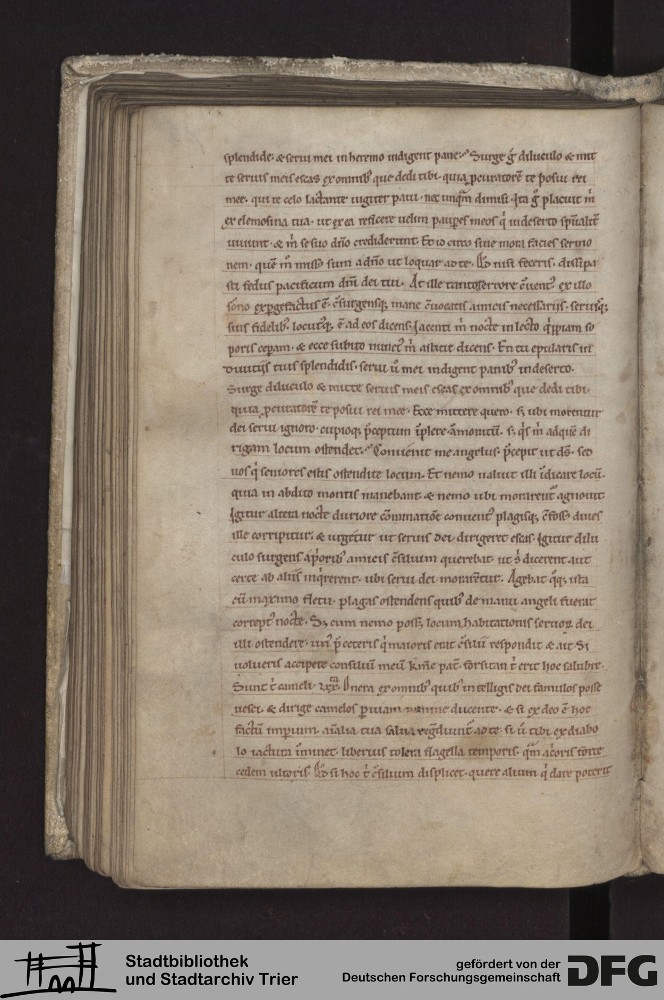 splendide· & serui mei in heremo indigent pane· Surge g̃ diluculo & mit
te seruis meis escas ex omnib; que dedi tibi· quia ꝓcuratorẽ te posui rei
mee· qui te celo lactante iugiter paui· nec unq̃m dimisi· Ita g̃ placuit m̃
ex elemosina tua· ut ex ea reficere uelim pauꝑes meos q̃ in deserto sp̃ualit̃
uiuunt· & m̃ se suo dño crediderunt· Et idcirco sine mora facies sermo
nem· quẽ m̃ miss; sum a dño ut loquar ad te· Qd̃ nisi feceris· dissipa
sti fedus pacificum dñi dei tui· At ille tanto terrore ex illo
sõno exꝑgefactus ẽ· c̃surgensq; mane c̃uocatis amicis necessariis· seruisq;
suis fidelib; locut;q; ẽ ad eos dicens· Iacenti m̃ nocte in lecto q̃ipiam so
poris ceꝑam· & ecce subito nunci; m̃ astitit dicens· En tu epularis in
diuitiis tuis splendidis· serui ũ mei indigent panib; in deserto·
Surge diluculo & mitte seruis meis escas ex omnib; que dedi tibi·
quia ꝓcuratorẽ te posui rei mee· Ecce mittere quero· s; ubi morentur
dei serui ignoro· cupioq; p̃ceptum ĩplere ãmonitũ· s; q̃s m̃ ad quẽ di
rigam locum ostendet· Conuenit me angelus· p̃cepit ut dõ· sed
uos q̃ seniores estis ostendite locum· Et nemo ualuit illi ĩdicare locũ·
quia in abdito montis manebant & nemo ubi morarent̃ agnouit
Igitur altera nocte duriore cõminatiõe conuent; plagisq; c̃foss; diues
ille corripitur· & urgetur ut seruis dei dirigeret escas· Igitur dilu
culo surgens a p̃orib; amicis c̃silium querebat· ut s̃ dicerent aut
certe ab aliis inq̃rerent· ubi serui dei morarentur· Agebat q̃q; ista
cũ maximo fletu· plagas ostendens quib; de manu angeli fuerat
corrept; nocte· S; cum nemo poss; locum habitationis seruoꝝ dei
illi ostendere· un; p̃ ceteris q̃ maioris erat c̃silii respondit & ait· Si
uolueris accipere consilium meũ kñe pat̃· forsitan t̃ erit hoc salubre·
Sunt t̃ cameli· lxx· Onera ex omnib; quib; intelligis dei famulos posse
uesci· & dirige camelos ꝑ uiam nemine ducente· & si ex deo ẽ hoc
factũ imperium· aĩalia tua salua reg̃diunt̃ ad te· si ũ tibi ex diabo
lo iactura ĩminet· libentius tolera flagella temporis· q̃m acrioris forte
cedem ultoris· Qd̃ si hoc t̃ c̃silium displicet· quere alium q̃ dare poterit
Stadtbibliothek
und Stadtarchiv Trier
gefördert von der
Deutschen Forschungsgemeinschaft
DFG